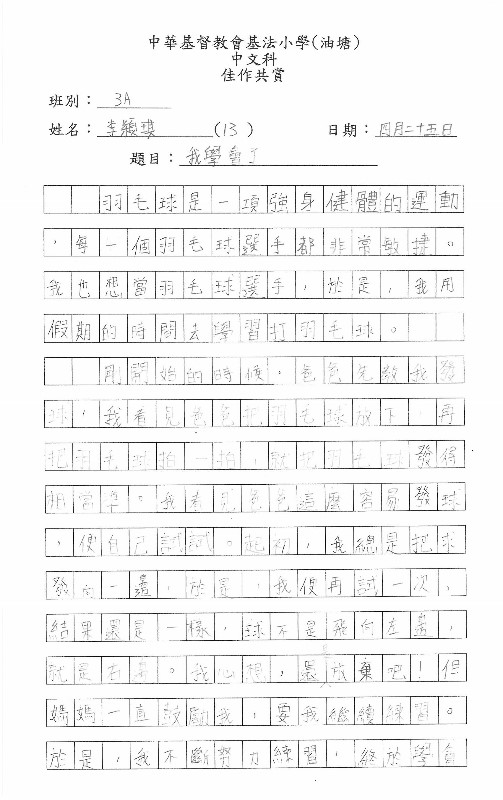 中華基督教會基法小學(油塘)
中文科
佳作共賞
班別：3A
姓名：李穎琪 (13) 日期：四月二十五日
題目：我學會了
羽毛球是一項強身健體的運動
，每一個羽毛球選手都非常敏捷。
我也想當羽毛球選手，於是，我用
假期的時間去學習打羽毛球。
剛開始的時候，爸爸先教我發
球，我看見爸爸把羽毛球放下，再
把羽毛球拍一拍，就把羽毛球發得
相當準。我看見爸爸這麼容易發球
，便自己試試。起初，我總是把球
發向一邊，於是，我便再試一次，
結果還是一樣，球不是飛向左邊，
就是右邊。我心想，還是放棄吧！但
媽媽一直鼓勵我，要我繼續練習。
於是，我不斷努力練習，終於學會